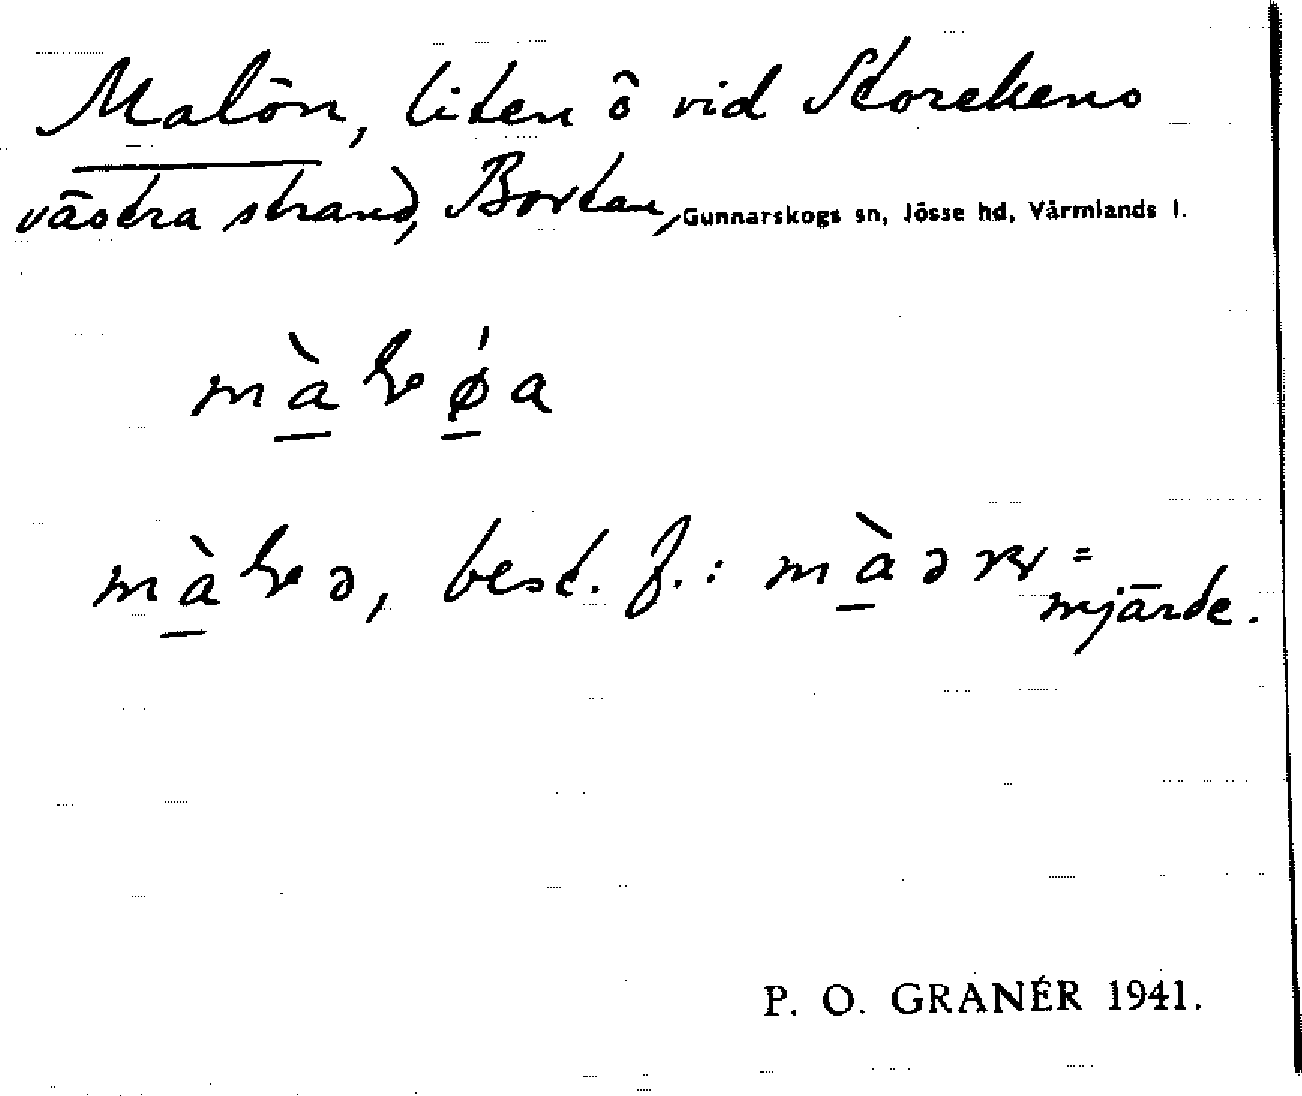 Malön, liten ö vid Storekens
västra strand, Bortan, Gunnarskogs sn, Jösse hd, Värmlands l.
best. f.:
= mjärde.
P. O. GRANÉR 1941.